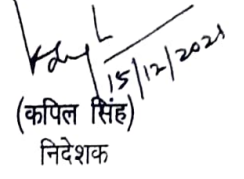 15/12/2021
(कपिल सिंह)
निदेशक